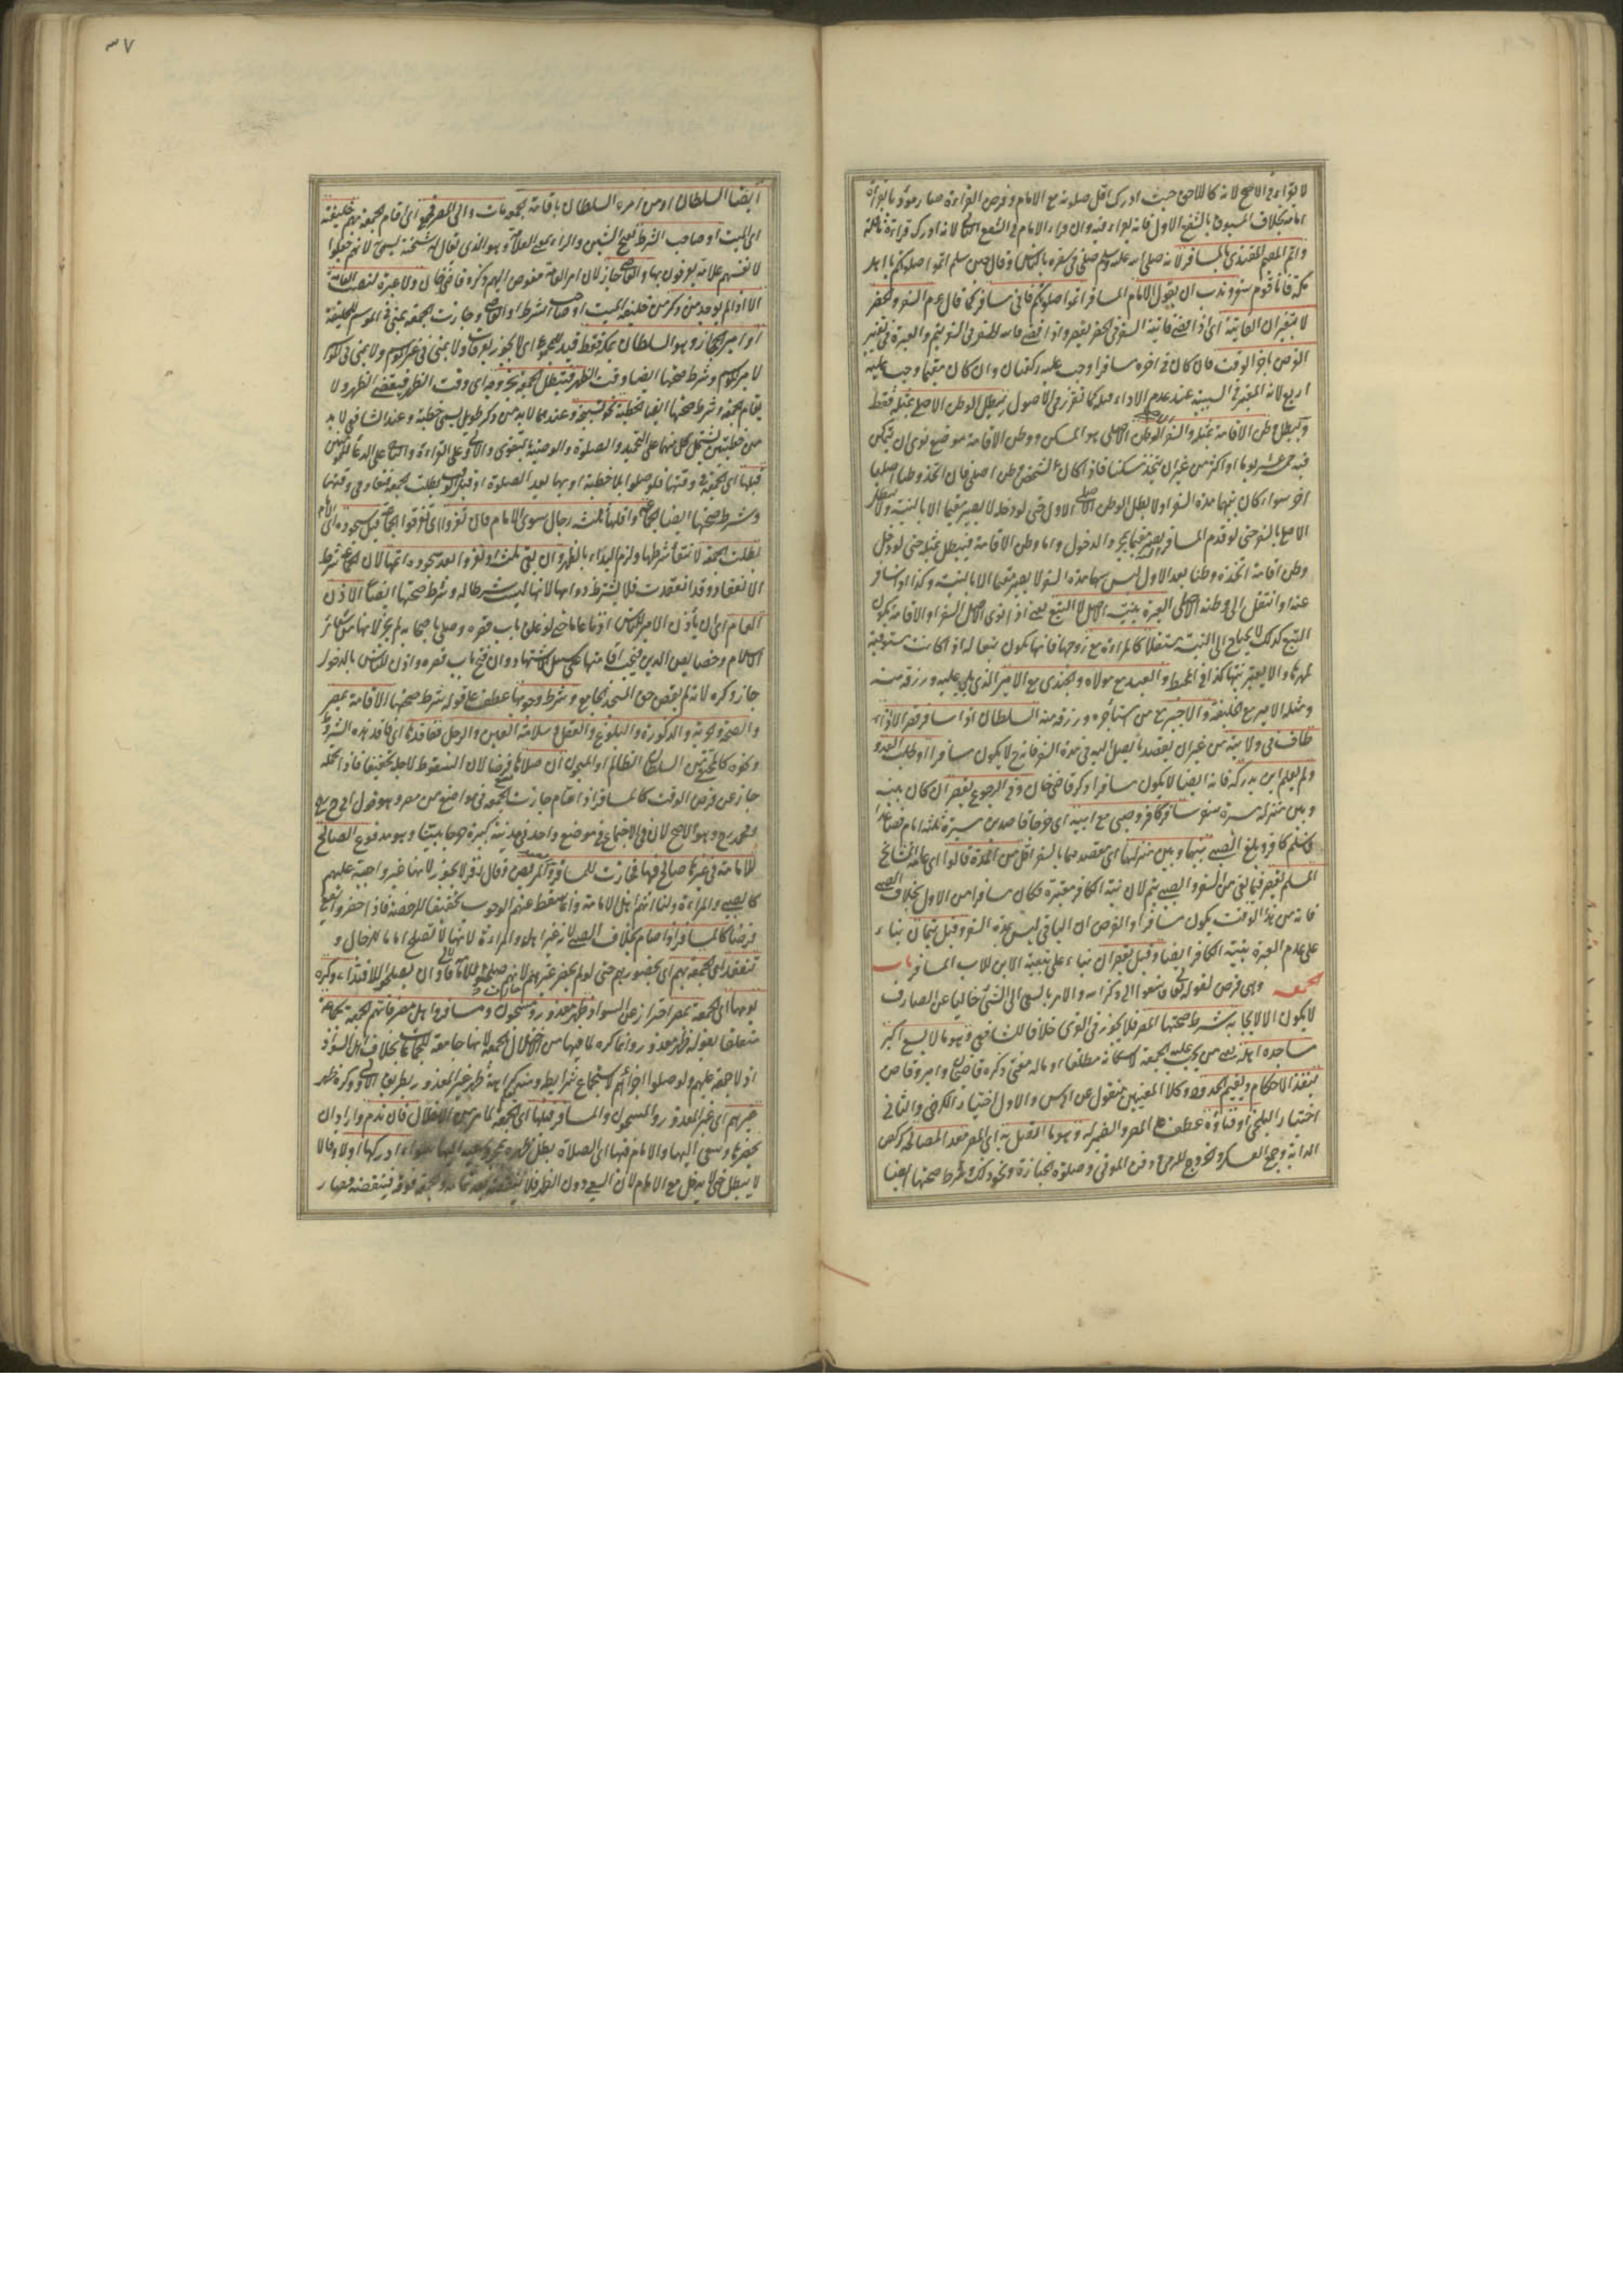 لا يقرأ في الاصح لانه كاللاحق حيث ادرك اقل صلوته مع الامام وفرض القراءة صار مؤدى بقراءة
امامه بخلاف المسبوق بالشفع الاول فانه يقرأ فيه وان قرأ الامام في الشفع الثاني لانه ادرك قراءة نافلة
واتم المقيم المقتدي بالمسافر لانه صلى الله عليه وسلم صلى في سفره بالناس وقال حين سلم اتموا صلوتكم يا اهل
مكة فانا قوم سفر وندب ان يقول الامام المسافر اتموا صلوتكم فاني مسافر كما قال عم السفر والحضر
لا يغيران الفائتة اي اذا قضى فائتة السفر في الحضر يقصر واذا قضى فائتة الحضر في السفر يتم والعبرة في تغيير
الفرض باخر الوقت فان كان في اخره مسافرا وجب عليه ركعتان وان كان مقيما وجب عليه
اربع لانه المعتبر في السببية عند عدم الاداء قبله كما تقرر في الاصول يبطل الوطن الاصلي بمثله فقط
ويبطل وطن الاقامة بمثله والسفر والوطن الاصلي هو المسكن ووطن الاقامة موضع نوى ان يتمكن
فيه خمسة عشر يوما او اكثر من غير ان يتخذ مسكنا فاذا كان لشخص وطن اصلي فان اتخذ وطنا اصليا
اخر سواء كان بينهما مدة السفر او لا يبطل الوطن الاصلي الاول حتى لو دخله لا يصير مقيما الا بالنية ولا يبطل
الاصلي بالسفر حتى لو قدم المسافر يصير مقيما بمجرد الدخول واما وطن الاقامة فيبطل بمثله حتى لو دخل
وطن اقامة اتخذه وطنا بعد الاول ليس بينهما مدة السفر لا يصير مقيما الا بالنية وكذا اذا سافر
عنه او انتقل الى وطنه الاصلي العبرة بنية الاصل لا التبع يعني اذا نوى الاصل السفر او الاقامة يكون
التبع كذلك لا يحتاج الى النية مستقلا كالمرأة مع زوجها فانها يكون تبعا له اذا كانت مستوفية
لمهرها والا يعتبر نيتها كذا في المحيط والعبد مع مولاه والجندي مع الامير الذي يلي عليه ورزقه منه
ومثله الامير مع الخليفة والاجير مع من استأجره ورزقه منه السلطان اذا سافر قصر الا اذا
طاف في ولايته من غير ان يقصد ما يصل اليه في مدة السفر فانه ح لا يكون مسافرا او طلب العدو
ولم يعلم اين يدركه فانه ايضا لا يكون مسافرا ذكر قاضي خان وفي الرجوع يقصر ان كان بينه
وبين منزله مسيرة سفر سافر كافر وصبي مع ابيه اي خرجا قاصدين مسيرة ثلثة ايام فصاعدا
فاسلم كافر وبلغ الصبي بينهما وبين منزلهما اي مقصدهما بالسفر اقل من المدة قالوا اي عامة المشايخ
المسلم يقصر فيما بقي من السفر والصبي يتم لان نية الكافر معتبرة فكان مسافرا من الاول بخلاف الصبي
فانه من هذا الوقت يكون مسافرا والفرض ان الباقي ليس مدة السفر وقيل يتمان بناء
على عدم العبرة بنية الكافر ايضا وقيل يقصران بناء على تبعية الابن للاب المسافر باب
الجمعة وهي فرض لقوله تعالى فاسعوا الى ذكر الله والامر بالسعي الى الشئ خاليا عن الصارف
لا يكون الا لايجابه شرط صحتها المصر فلا يجوز في القرى خلافا للشافعي وهو ما لا يسع اكبر
مساجده اهله يعني من يجب عليه الجمعة لا سكانه مطلقا او ما له مفتي ذكره قاضيخان وامير وقاض
ينفذ الاحكام ويقيم الحدود وكلا المعنيين منقول عن ابي يوسف والاول اختيار الكرخي والثاني
اختيار البلخي او فناؤه عطف على المصر والضمير له وهو ما اتصل به اي المصر معدا لمصالحه كركض
الدابة وجمع العساكر والخروج للرمي ودفن الموتى وصلوة الجنازة ونحو ذلك وشرط صحتها ايضا
٣٧
ايضا السلطان او من امره السلطان باقامة الجمعة مات والي المصر فجمع اي اقام الجمعة بهم خليفته
اي الميت او صاحب الشرط بفتح الشين والراء بمعنى العلامة وهو الذي يقال له شحنة يسمى لانهم جعلوا
لانفسهم علامة يعرفون بها والقاضي جاز لان امر العامة مفوض اليهم ذكره قاضي خان ولا عبرة لنصب العامة
الا اذا لم يوجد من ذكر من خليفة الميت او صاحب الشرط او القاضي وجازت الجمعة بمنى في الموسم للخليفة
او امير الحجاز وهو السلطان بمكة فقط قيد للمجموع اي لا يجوز بعرفات ولا بمنى في غير الموسم ولا بمنى في الموسم
لامير الموسم وشرط صحتها ايضا وقت الظهر فتبطل الجمعة بخروجه اي وقت الظهر فيقضي الظهر ولا
يقام الجمعة وشرط صحتها ايضا الخطبة نحو تسبيحة وعندهما لا بد من ذكر طويل يسمى خطبة وعند الشافعي لا بد
من خطبتين يشتمل كل منهما على التحميد والصلوة والوصية بالتقوى والاولى على القراءة والثانية على الدعاء للمؤمنين
قبلها اي الجمعة في وقتها فلو صلوا بلا خطبة او بها بعد الصلوة او قبل الوقت بطلت الجمعة فتعاد في وقتها
وشرط صحتها ايضا الجماعة واقلها ثلثة رجال سوى الامام فان نفروا اي تفرقوا الجماعة قبل سجوده اي الامام
بطلت الجمعة لانتفاء شرطها ولزم البداء بالظهر وان بقي ثلثة او نفروا بعد سجوده اتمها لان الجماعة شرط
الانعقاد وقد انعقدت فلا يشترط دوامها لانها ليست شرطا له وشرط صحتها ايضا الاذن
العام اي ان يأذن الامير للناس اذنا عاما حتى لو غلق باب قصره وصلى باصحابه لم يجز لانها من شعائر
الاسلام وخصايص الدين فيجب اقامتها على سبيل الاشتهار وان فتح باب قصره واذن للناس بالدخول
جاز وكره لانه لم يقض حق المسجد الجامع وشرط وجوبها عطف على قوله شرط صحتها الاقامة بمصر
والصحة والحرية والذكورة والبلوغ والعقل وسلامة العين والرجل ففاقدها اي فاقد هذه الشروط
ونحوه كالمختفي من السلطان الظالم او المسجون ان صلاها فرضا لان السقوط لاجله تخفيفا فاذا تحمله
جاز عن فرض الوقت كالمسافر اذا صام جازت الجمعة في مواضع من مصر وهو قول ابي ح رح
ومحمد رح وهو الاصح لان في الاجتماع في موضع واحد في مدينة كبيرة حرجا بينا وهو مدفوع الصالح
للامامة في غيرها صالح فيها فجازت للمسافر والعبد والمريض وقال زفر لا يجوز لانها غير واجبة عليهم
كالصبي والمراءة ولنا انهم اهل الامامة وانما سقط عنهم الوجوب تخفيفا للرخصة فاذا حضروا تقع
فرضا كالمسافر اذا صام بخلاف الصبي لانه غير اهل والمراءة لانها لا تصلح اماما للرجال و
تنعقد اي الجمعة بهم اي بحضورهم حتى لو لم يحضر غيرهم لانهم صلحوا للامامة فاولى ان يصلحوا للاقتداء وكره
يومها اي الجمعة بمصر احتراز عن السواد ظهر معذور ومسجون ومسافر واهل مصر فاتتهم الجمعة بجماعة
متعلقا بقوله ظهر معذور وانما كره لما فيها من الاخلال بالجمعة لانها جامعة للجماعات بخلاف اهل السواد
اذ لا جمعة عليهم ولو صلوا اجزأهم لاستجماع شرايطه ومنه يعلم كراهة ظهر غير المعذور بطريق الاولى وكره ظهر
غيرهم اي غير المعذور والمسجون والمسافر قبلها اي الجمعة لما مر من الاخلال فان ندم واراد ان
يحضرها وسعى اليها والامام فيها اي الصلاة بطل ظهره بمجرد سعيه اليها سواء ادركها او لا وقالا
لا يبطل حتى يدخل مع الامام لان السعي دون الظهر فلا ينقضه بعد تمامه والجمعة فوقه فينقضه فصار